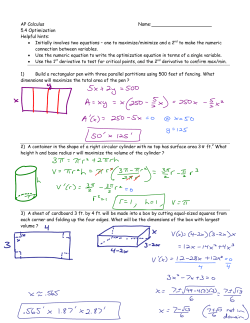 AP Calculus Name:
5.4 Optimization
Helpful hints:
• Initially involves two equations – one to maximize/minimize and a 2nd to make the numeric
connection between variables.
• Use the numeric equation to write the optimization equation in terms of a single variable.
• Use the 1st derivative to test for critical points, and the 2nd derivative to confirm max/min.
1) Build a rectangular pen with three parallel partitions using 500 feet of fencing. What
dimensions will maximize the total area of the pen?
5x + 2y = 500
A = xy = x(250 - 5/2 x) = 250x - 5/2 x²
A'(x) = 250 - 5x = 0 @ x = 50
y = 125
50' x 125'
x
y
2) A container in the shape of a right circular cylinder with no top has surface area 3π ft.² What
height h and base radius r will maximize the volume of the cylinder?
3π = πr² + 2πrh
r = 1, h = 1
3) A sheet of cardboard 3 ft. by 4 ft. will be made into a box by cutting equal-sized squares from
each corner and folding up the four edges. What will be the dimensions of the box with largest
volume?
4
3
x
4-2x
3-2x
V(x) = (4-2x)(3-2x)x
= 12x - 14x² + 4x³
V'(x) = 12 - 28x + 12x² = 0
3x² - 7x + 3 = 0
x ≈ .565
.565' x 1.87' x 2.87'